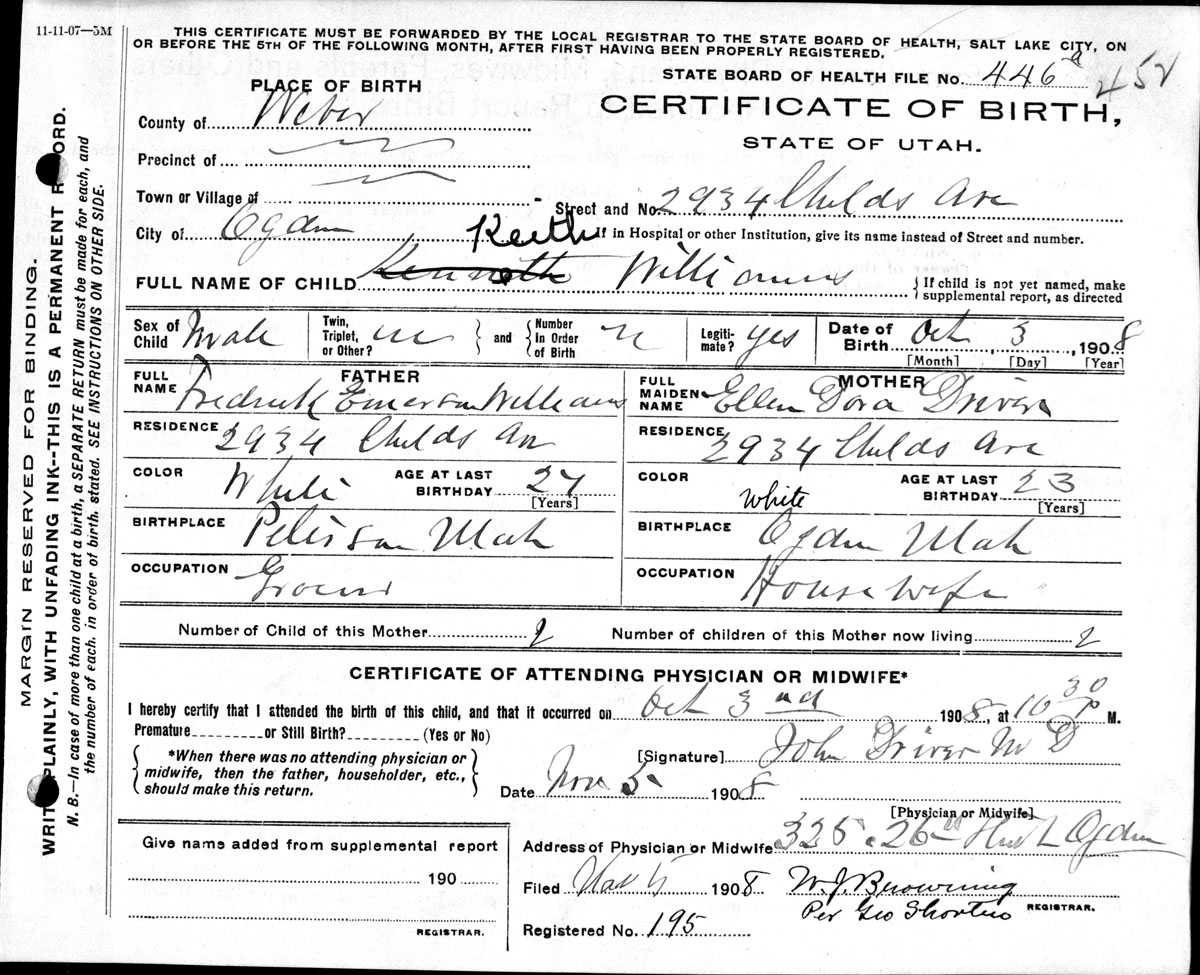 11-11-07—5M
THIS CERTIFICATE MUST BE FORWARDED BY THE LOCAL REGISTRAR TO THE STATE BOARD OF HEALTH, SALT LAKE CITY, ON
OR BEFORE THE 5TH OF THE FOLLOWING MONTH, AFTER FIRST HAVING BEEN PROPERLY REGISTERED.
STATE BOARD OF HEALTH FILE No. 446 452
PLACE OF BIRTH
CERTIFICATE OF BIRTH,
STATE OF UTAH.
County of Weber
Precinct of
Town or Village of
Street and No. 2934 Childs Ave
City of Ogden
If in Hospital or other Institution, give its name instead of Street and number.
Keith
FULL NAME OF CHILD Kenneth Williams
If child is not yet named, make
supplemental report, as directed
Sex of Child Male
Twin, Triplet, or Other?
and
Number In Order of Birth
Legiti-mate? yes
Date of Birth Oct 3, 1908
[Month] [Day] [Year]
FATHER
FULL NAME Fredrick Emerson Williams
RESIDENCE 2934 Childs Av
COLOR White
AGE AT LAST BIRTHDAY 27
[Years]
BIRTHPLACE Peterson Utah
OCCUPATION
MOTHER
FULL MAIDEN NAME Ellen Dora Driver
RESIDENCE 2934 Childs Ave
COLOR White
AGE AT LAST BIRTHDAY 23
[Years]
BIRTHPLACE Ogden Utah
OCCUPATION Housewife
Number of Child of this Mother 2
Number of children of this Mother now living 2
CERTIFICATE OF ATTENDING PHYSICIAN OR MIDWIFE*
I hereby certify that I attended the birth of this child, and that it occurred on Oct 3 nd 1908, at 10 30 P M.
Premature or Still Birth? (Yes or No)
*When there was no attending physician or
midwife, then the father, householder, etc.,
should make this return.
[Signature] John Driver MD
Date Nov 5 1908
[Physician or Midwife]
Address of Physician or Midwife 325 26th Ogden
Give name added from supplemental report
190
REGISTRAR.
Filed Nov 5 1908 W. J. Browning
Per Geo Shorten REGISTRAR.
Registered No. 195
MARGIN RESERVED FOR BINDING.
WRITE PLAINLY, WITH UNFADING INK--THIS IS A PERMANENT RECORD.
N. B.—In case of more than one child at a birth, a SEPARATE RETURN must be made for each, and
the number of each, in order of birth, stated. SEE INSTRUCTIONS ON OTHER SIDE.